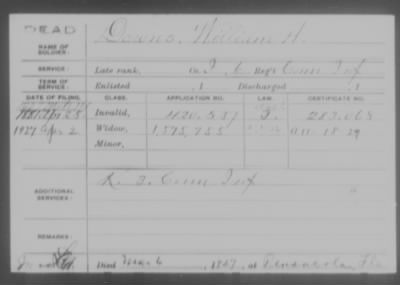 DEAD
Downs, William H.
NAME OF SOLDIER:
SERVICE:
Late rank, Co. I, 6 Reg't Conn Inf
TERM OF SERVICE:
Enlisted , 1 Discharged , 1
DATE OF FILING. CLASS. APPLICATION NO. LAW. CERTIFICATE NO.
Invalid, 283.068
1927 Apr 2 Widow, 1,575,755 A 11-18-29
Minor,
ADDITIONAL SERVICES:
K. 2. Conn Inf
REMARKS:
Died Mar 6, 1927, at Pensacola, Fla